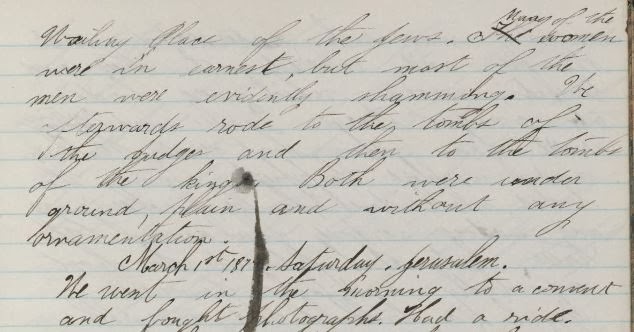 Many of the
Wailing Place of the Jews. The women
were in earnest, but most of the
men were evidently shamming. We
afterwards rode to the tombs of
the judges and then to the tombs
of the kings Both were under
ground, plain and without any
ornamentation.
March 1st 187 . Saturday. Jerusalem.
We went in the morning to a convent
and bought photographs. Had a ride